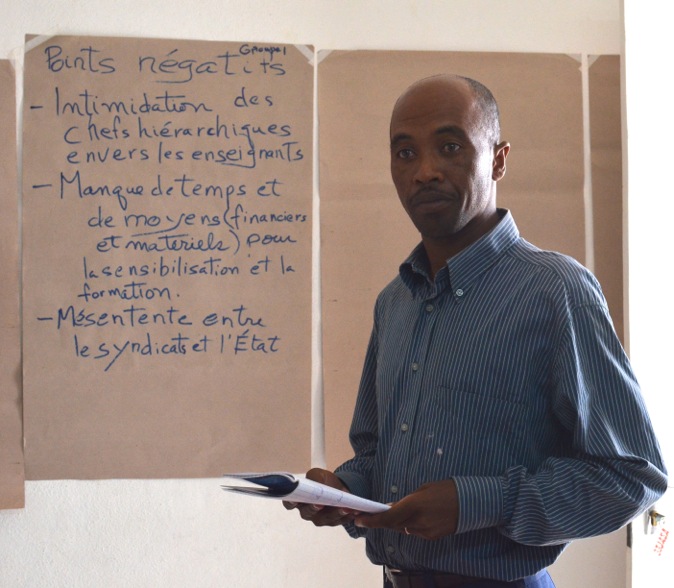 Groupe 1
Points négatifs
- Intimidation des
chefs hiérarchiques
envers les enseignants
- Manque de temps et
de moyens (financiers
et matériels) pour
la sensibilisation et la
formation.
- Mésentente entre
le syndicats et l'État